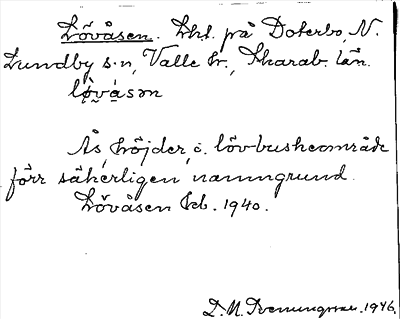 Lövåsen. Lht. på Doterbo, N.
Lundby s:n, Valle hr., Skarab. län.
lö̀vásən
Ås, höjder, i lövbuskområde
förr säkerligen namngrund.
Lövåsen Ecb. 1940.
D. N. 1946.